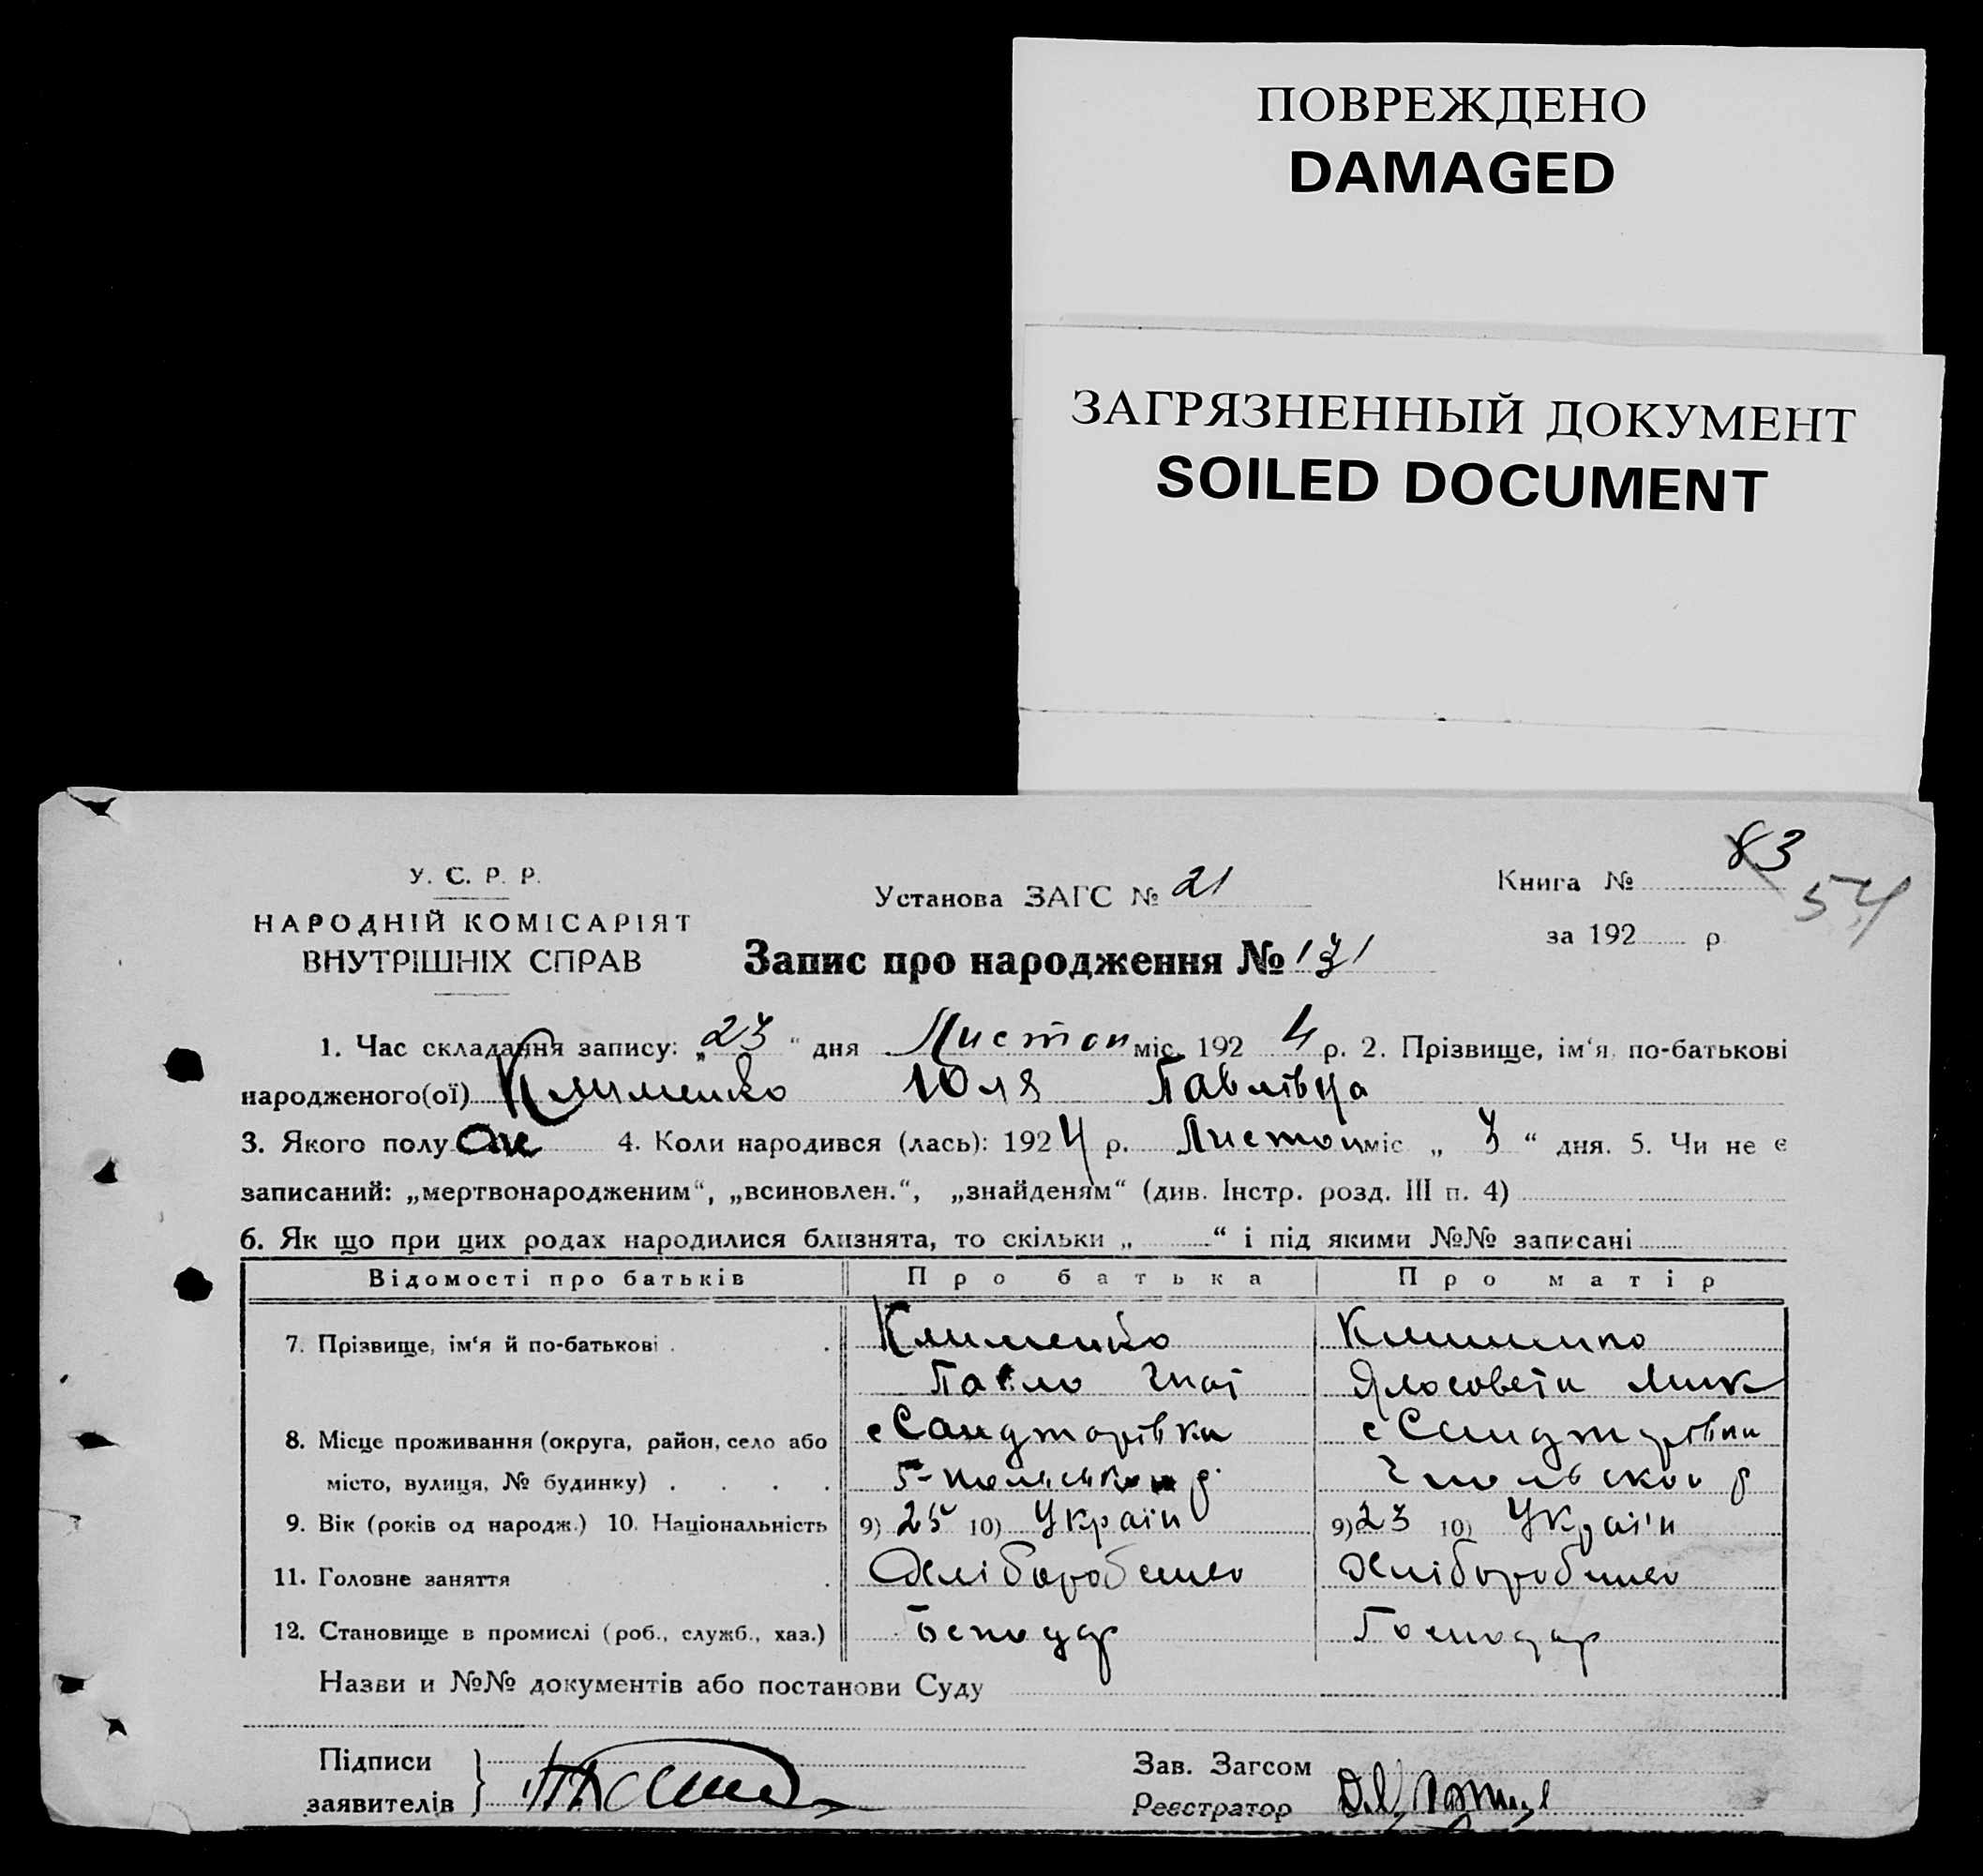 ПОВРЕЖДЕНО
DAMAGED
ЗАГРЯЗНЕННЫЙ ДОКУМЕНТ
SOILED DOCUMENT
83
54
У. С. Р. Р.
НАРОДНІЙ КОМІСАРІЯТ
ВНУТРІШНІХ СПРАВ
Установа ЗАГС № 21
Книга №
за 192 р
Запис про народження №
1. Час складання запису: „23“ дня Листоп міс. 192 4 р. 2. Прізвище, ім‘я, по-батькові
народженого(ої) Клименко Юля Павлівна
3. Якого полу Ж 4. Коли народився (лась): 1924 р. Листоп міс „ 3 “ дня. 5. Чи не є
записаний: „мертвонародженим“, „всиновлен.“, „знайденям“ (див. Інстр. розд. III п. 4)
6. Як що при цих родах народилися близнята, то скільки „ “ і під якими №№ записані
Відомості про батьків Про батька Про матір
7. Прізвище, ім‘я й по-батькові . . Клименко Клименко
Павло Гнат
8. Місце проживання (округа, район, село або с Санджарівка с Санджарівка
місто, вулиця, № будинку) . . . . р р
9. Вік (років од народж.) 10. Національність 9) 25 10) Україн 9) 23 10) Україн
11. Головне заняття . Хліборобство Хліборобство
12. Становище в промислі (роб., служб., хаз.) Господар Господар
Назви и №№ документів або постанови Суду
Підписи
заявителів }
Зав. Загсом
Реєстратор